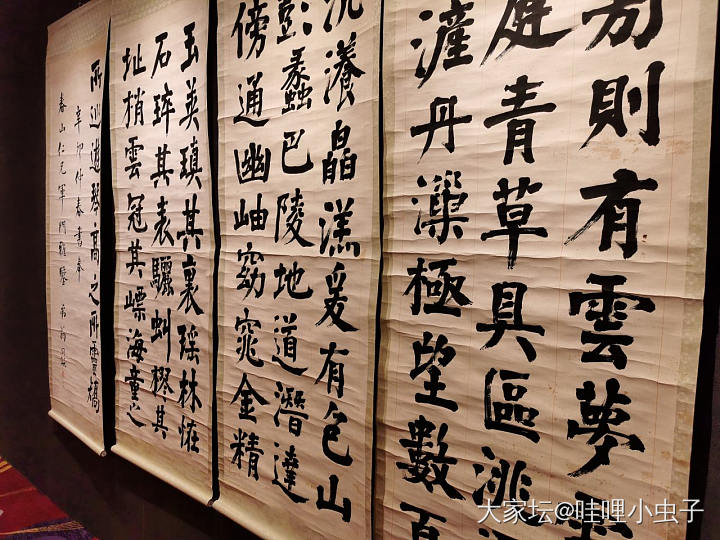 旁則有雲夢
庭青草具區洮
滻丹漅極望數百
沆瀁皛溔爰有包山
彭蠡巴陵地道潛逵
傍通幽岫窈窕金精
玉英瑱其裏瑶林恠
石琗其表驪虯摎其
址梢雲冠其㟽海童之
所巡遊琴高之所靈矯
辛卯仲春書奉
春山仁兄軍門雅鑒 弟翁同龢
大家坛@哇哩小虫子